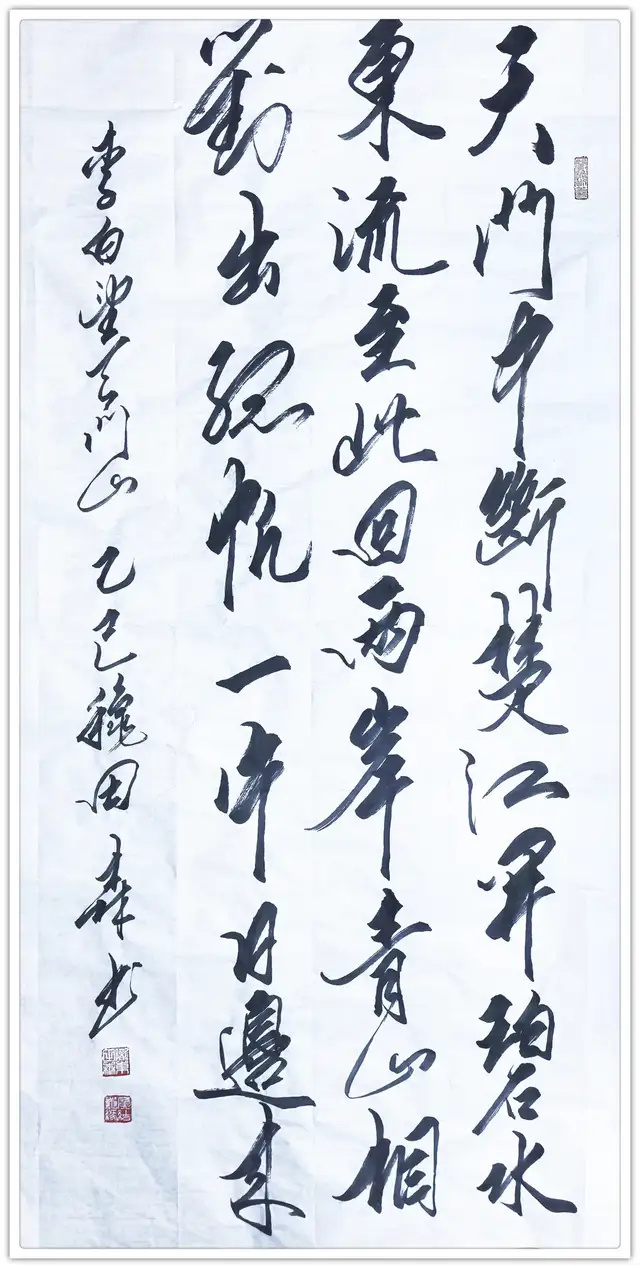 天門中斷楚江開碧水
東流至此回兩岸青山相
對出孤帆一片日邊來
李白望天門山 乙巳穐田森书